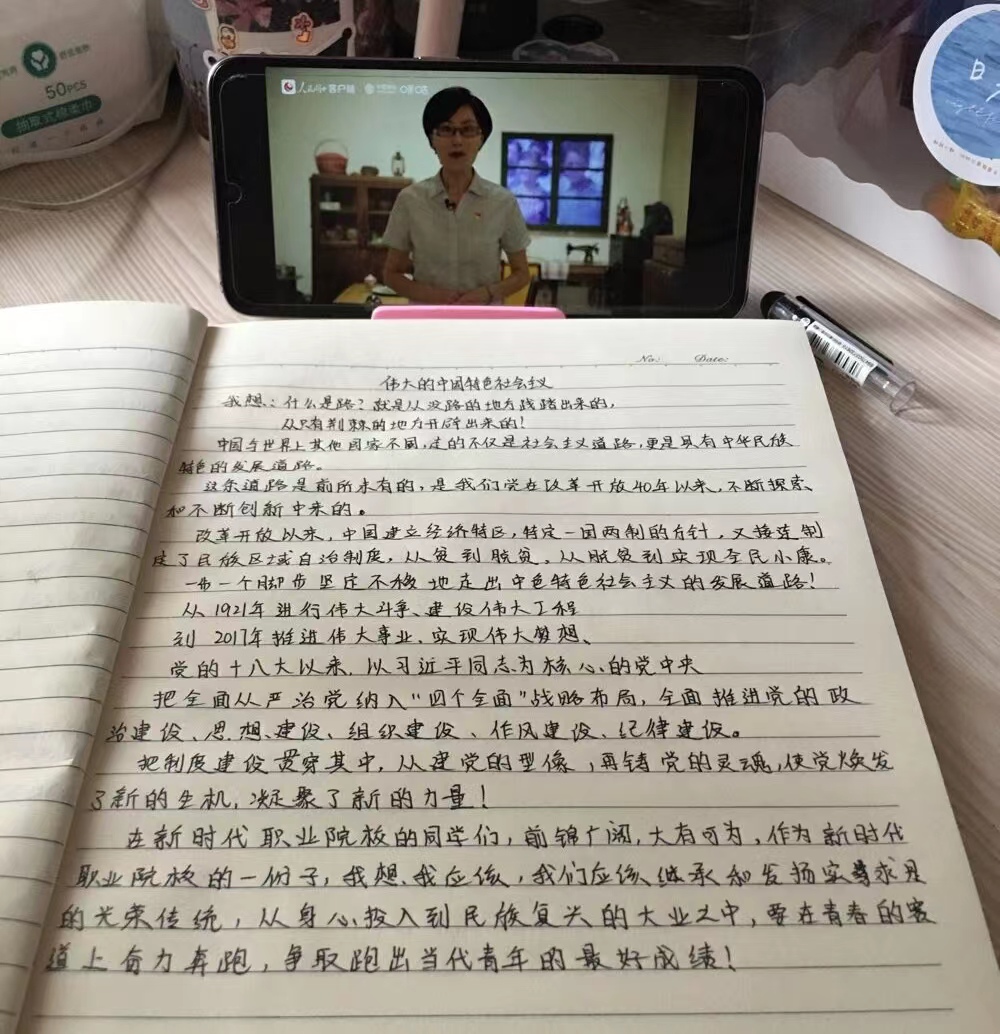 50PCS
抽取式绵柔巾
客户端
日
No:
Date:
伟大的中国特色社会主义
我想:什么是路?就是从没路的地方践踏出来的,
从只有荆棘的地方开辟出来的!
中国与世界上其他国家不同,走的不仅是社会主义道路,更是具有中华民族
特色的发展道路。
这条道路是前所未有的,是我们党在改革开放40年以来,不断探索、
和不断创新中来的。
改革开放以来,中国建立经济特区,特定一国两制的方针,又接连制
定了民族区域自治制度,从贫到脱贫,从脱贫到实现全民小康。
一步一个脚步坚定不移地走出中色特色社会主义的发展道路!
从1921年进行伟大斗争、建设伟大工程
到2017年推进伟大事业、实现伟大梦想、
党的十八大以来,以习近平同志为核心的党中央
把全面从严治党纳入"四个全面"战略布局,全面推进党的政
治建设、思想建设、组织建设、作风建设、纪律建设。
把制度建设贯穿其中,从建党的型像,再铸党的灵魂,使党焕发
了新的生机,凝聚了新的力量!
在新时代职业院校的同学们,前锦广阔,大有可为,作为新时代
职业院校的一份子,我想,我应该,我们应该继承和发扬实事求是
的光荣传统,从身心投入到民族复兴的大业之中,要在青春的赛
道上奋力奔跑,争取跑出当代青年的最好成绩!